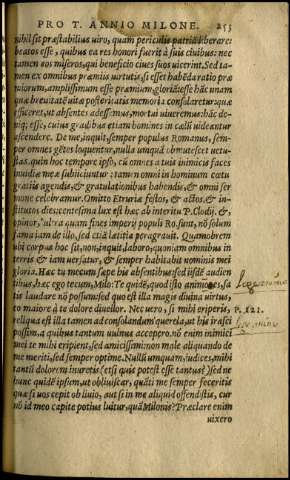 PRO T. ANNIO MILONE. 253
nihil sit præstabilius uiro, quàm periculis patriã liberare:
beatos esse, quibus ea res honori fuerit à suis ciuibus: nec
tamen eos miseros, qui beneficio ciues suos uicerint. Sed ta-
men ex omnibus præmijs uirtutis, si esset habẽda ratio præ
miorum, amplissimum esse præmium, gloriã: esse hãc unam
quæ breuitatẽ uitæ posteritatis memoria consolaretur: quæ
efficeret, ut absentes adessemus, mortui uiueremus: hãc de-
niq; esse, cuius gradibus etiam homines in cœlũ uideantur
ascendere. De me, inquit, semper populus Romanus, sem-
per omnes gẽtes loquentur, nulla unquã obmutescet uetu-
stas. quin hoc tempore ipso, cũ omnes à tuis inimicis faces
inuidiæ meæ subijciuntur: tamen omni in hominum cœtu
gratijs agendis, & gratulationibus habendis, & omni ser
mone celebramur. Omitto Etruriæ festos, & actos, & in-
stitutos dies: centesima lux est hæc ab interitu P. Clodij, &,
opinor, altera. quam fines imperij populi Ro. sunt, nõ solum
fama iam de illo, sed etiã lætitia peragrauit. Quamobrem
ubi corpus hoc sit, non, inquit, laboro: quoniam omnibus in
terris & iam uersatur, & semper habitabit nominis mei
gloria. Hæc tu mecum sæpe his absentibus: sed ijsdẽ audien
tibus, hæc ego tecum, Milo: Te quidẽ, quod isto animo es, sa
tis laudare nõ possum: sed quo est illa magis diuina uirtus,
eo maiore à te dolore diuellor. Nec uero, si mihi eriperis,
reliqua est illa tamen ad consolandum querela, ut his irasci
possim, à quibus tantum uulnus accepero. nõ enim inimici
mei te mihi eripient, sed amicissimi: non male aliquando de
me meriti, sed semper optime. Nullũ umquam, iudices, mihi
tantũ dolorem inuretis (etsi quis potest esse tantus?) sed ne
hunc quidẽ ipsum, ut obliuiscar, quãti me semper feceritis
quæ si uos cepit obliuio, aut si in me aliquid offendistis, cur
nõ id meo capite potius luitur, quã Milonis? Præclare enim
uixero